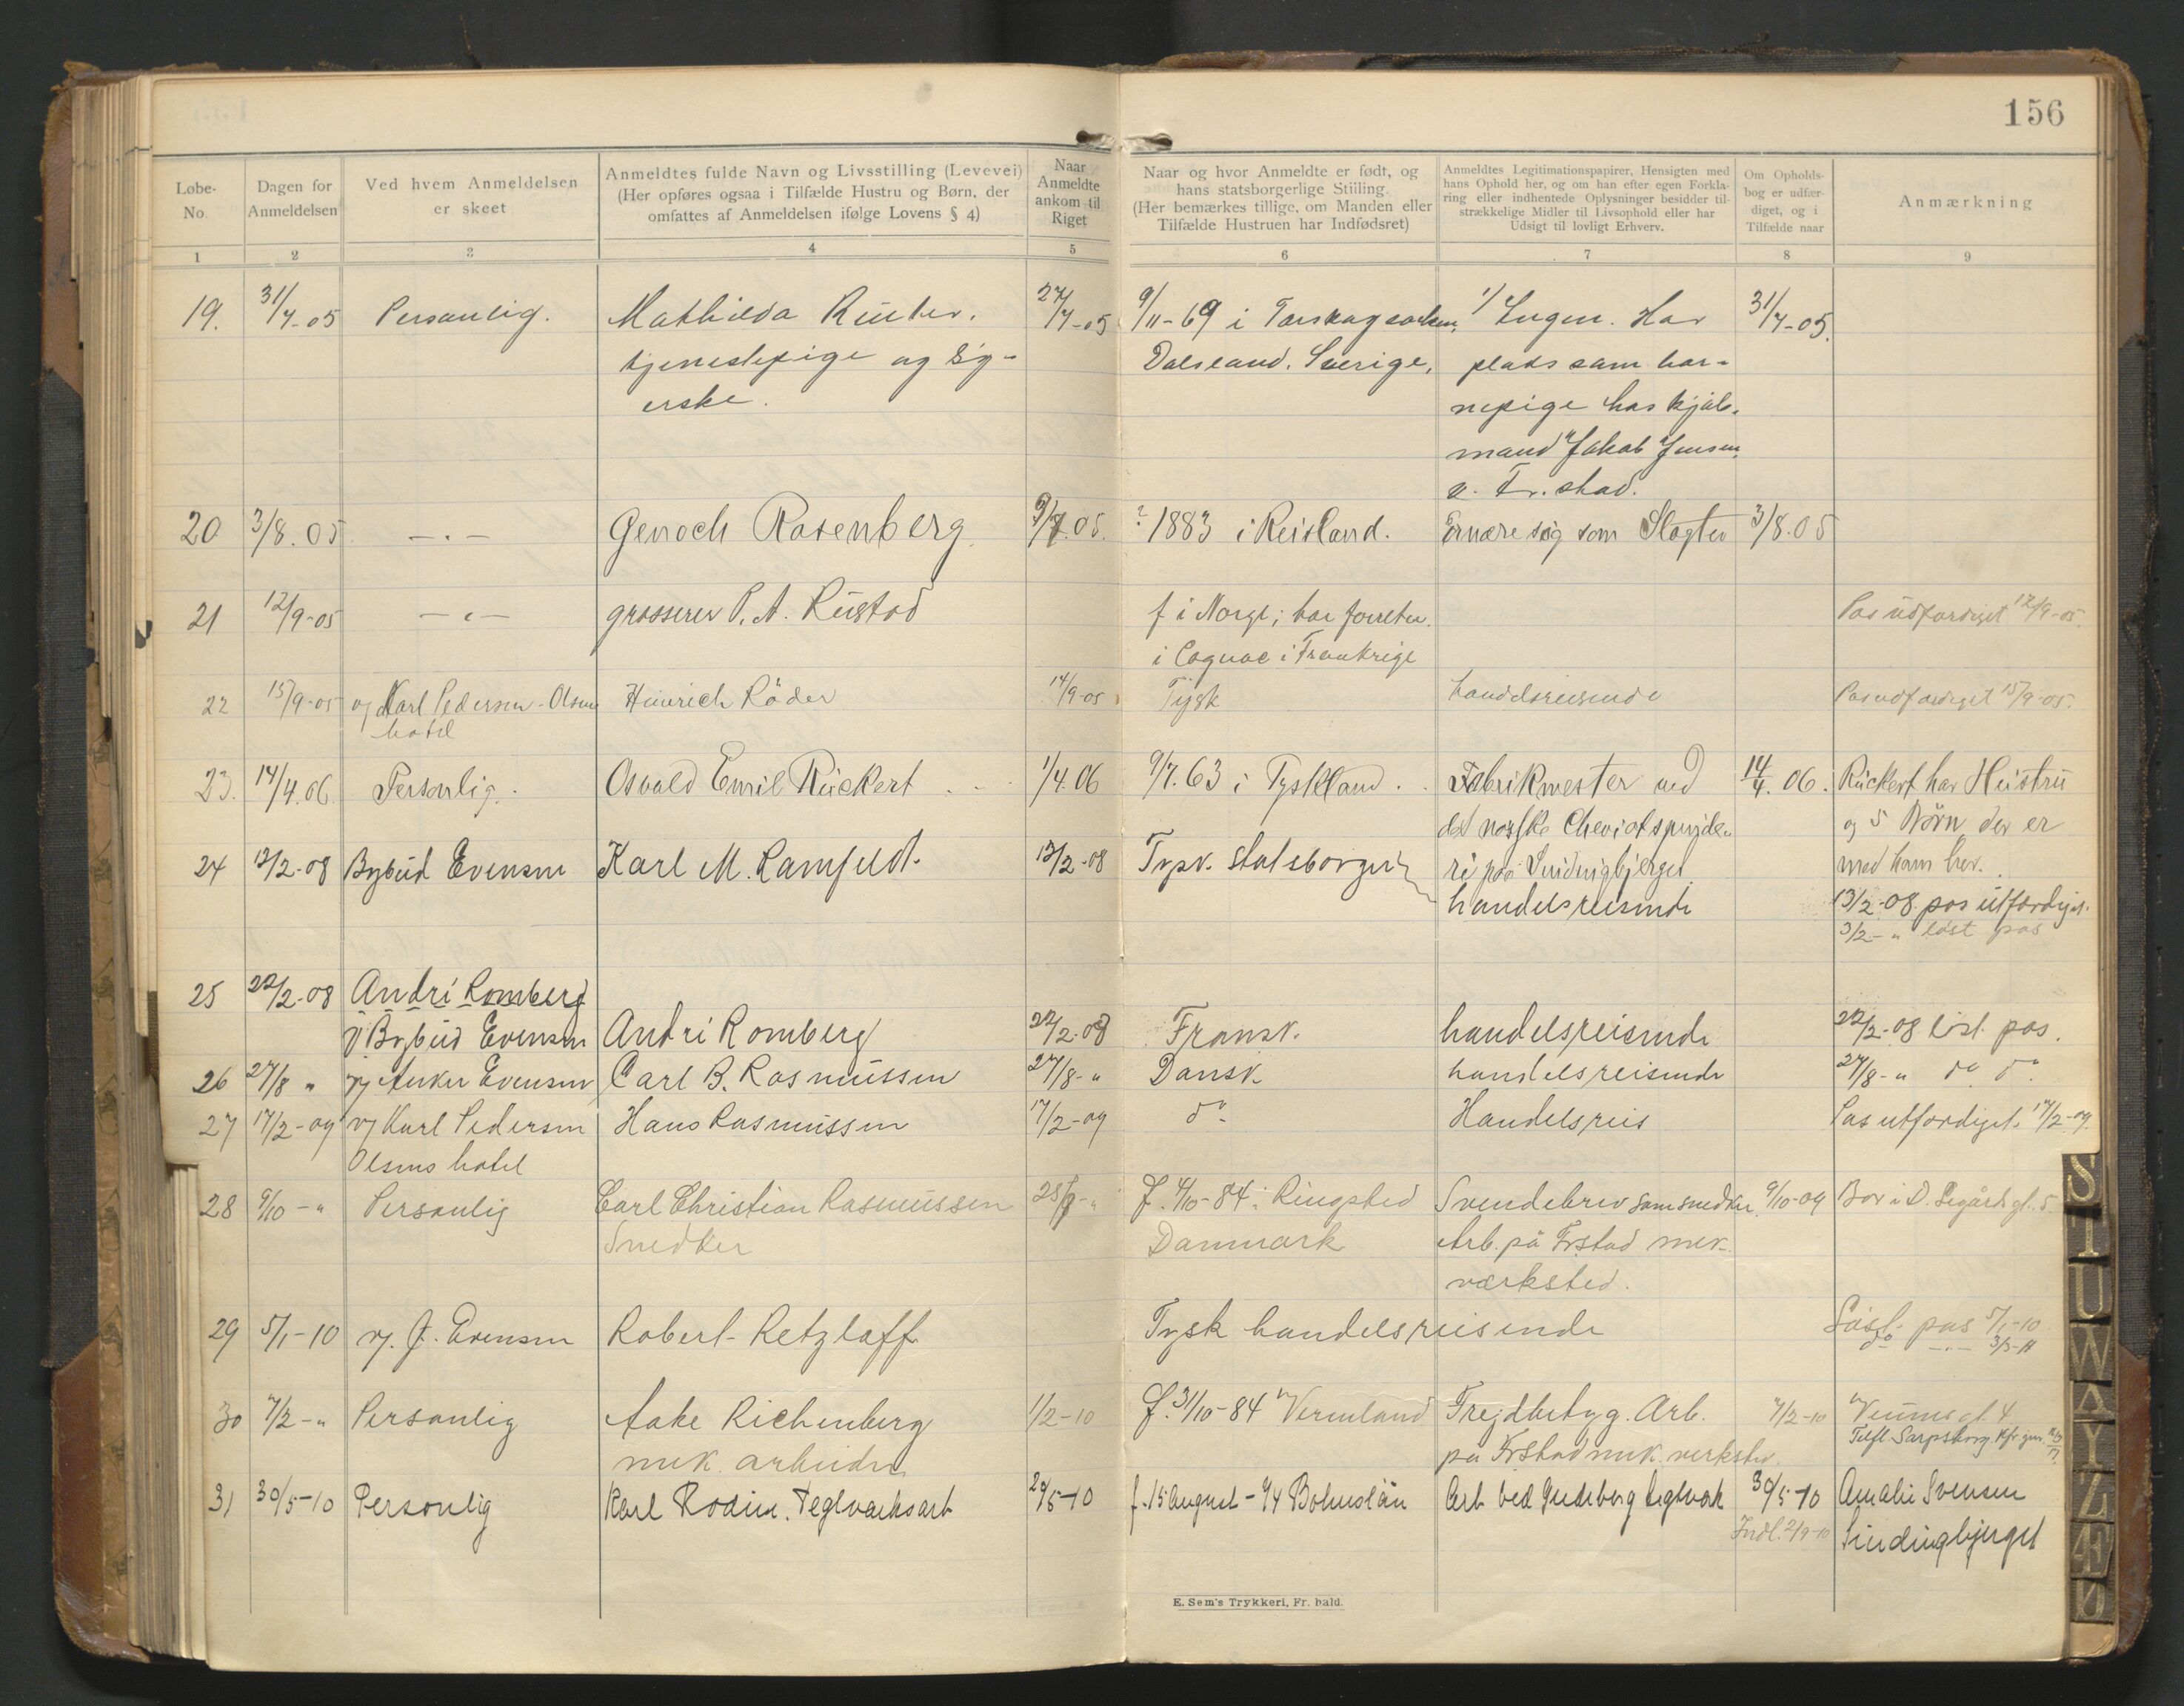 156
Løbe-No.
Dagen for Anmeldelsen
Ved hvem Anmeldelsen er skeet
Anmeldtes fulde Navn og Livsstilling (Levevei)
(Her opføres ogsaa i Tilfælde Hustru og Børn, der
omfattes af Anmeldelsen ifølge Lovens § 4)
Naar Anmeldte ankom til Riget
Naar og hvor Anmeldte er født, og
hans statsborgerlige Stiiling.
(Her bemærkes tillige, om Manden eller
Tilfælde Hustruen har Indfødsret)
Anmeldtes Legitimationspapirer, Hensigten med
hans Ophold her, og om han efter egen Forkla-
ring eller indhentede Oplysninger besidder til-
strækkelige Midler til Livsophold eller har
Udsigt til lovligt Erhverv.
Om Opholds-
bog er udfær-
diget, og i
Tilfælde naar
Anmærkning
1 2 3 4 5 6 7 8 9
19. 31/7-05 Personlig. Mathilda 27/7-05 9/11-69 i 1/ Ingen. Har 31/7-05.
tjenestepige og Dalsland. Sverige, plads som bar-
erske. nepige hos
mand Jakob Jensen,
Fr.stad.
20 3/8.05 — . — Genoch Rosenberg ? 1883 i Ernære sig som Slagter 3/8.05
21 12/9-05 — „ — grosserer P. A. Rustad f i Norge; har forretn. Pas udfærdiget 12/9-05.
i Cognac i Frankrige
22 15/9-05 v/ Karl Pedersen - Olsens Heinrich Röder 14/9-05 Tysk handelsreisende Pas udfærdiget 15/9-05.
hotel
23. 14/4.06. Personlig. Osvald Emil Rückert 1/4.06 9/7.63 i Tyskland. Fabrikmester ved 14/4.06. Rückert har Hustru
det norske Cheviotspinde- og 5 Børn der er
24 12/2-08 Bybud Evensen Karl M. 12/2-08 Tysk. statsborger ri paa med ham her.
handelsreisende 13/2-08 pas utfærdiget.
3/2 - „ løst pas
25 22/2-08 Andri Romberg
v/ Bybud Evensen Andri Romberg 22/2-08 Fransk. handelsreisende 22/2-08 løst pas.
26 27/8 „ v/ Anker Evensen Carl B. Rasmussen 27/8-„ Dansk. handelsreisende 27/8-„ do do
27 17/2-09 v/ Karl Pedersen Hans Rasmussen 17/2-09 do Handelsreis Pas utfærdiget 17/2-09.
Olsens hotel
28 9/10-„ Personlig Carl Christian Rasmussen f. 4/10-84 i Ringsted Svendebrev som snedker. 9/10-09 Bor i
Snedker Danmark Arb. på Fr.stad mek.
værksted.
29 5/1-10 v/. J. Evensen Robert Retzlaff Tysk handelsreisende Løst pas 5/1-10
do —„— 3/3-11
30 7/2-„ Personlig Aake Richenberg 1/2-10 f. 31/10-84 Vermland Frejdbetyg. Arb. 7/2-10
mek. arbeider på Fr.stad mek. verksted. Tilfl. Sarpsborg.
31 30/5-10 Personlig Karl Rodin. Teglværksarb 29/5-10 f. 15 August - 74 Bohuslän Arb ved Gudeberg teglverk 30/5-10 Amalie Svensen
Indl. 2/9-10 Sindingbjerget
E. Sem's Trykkeri, Fr. hald.
S
T
U
W
Y
Z
Æ
Ø